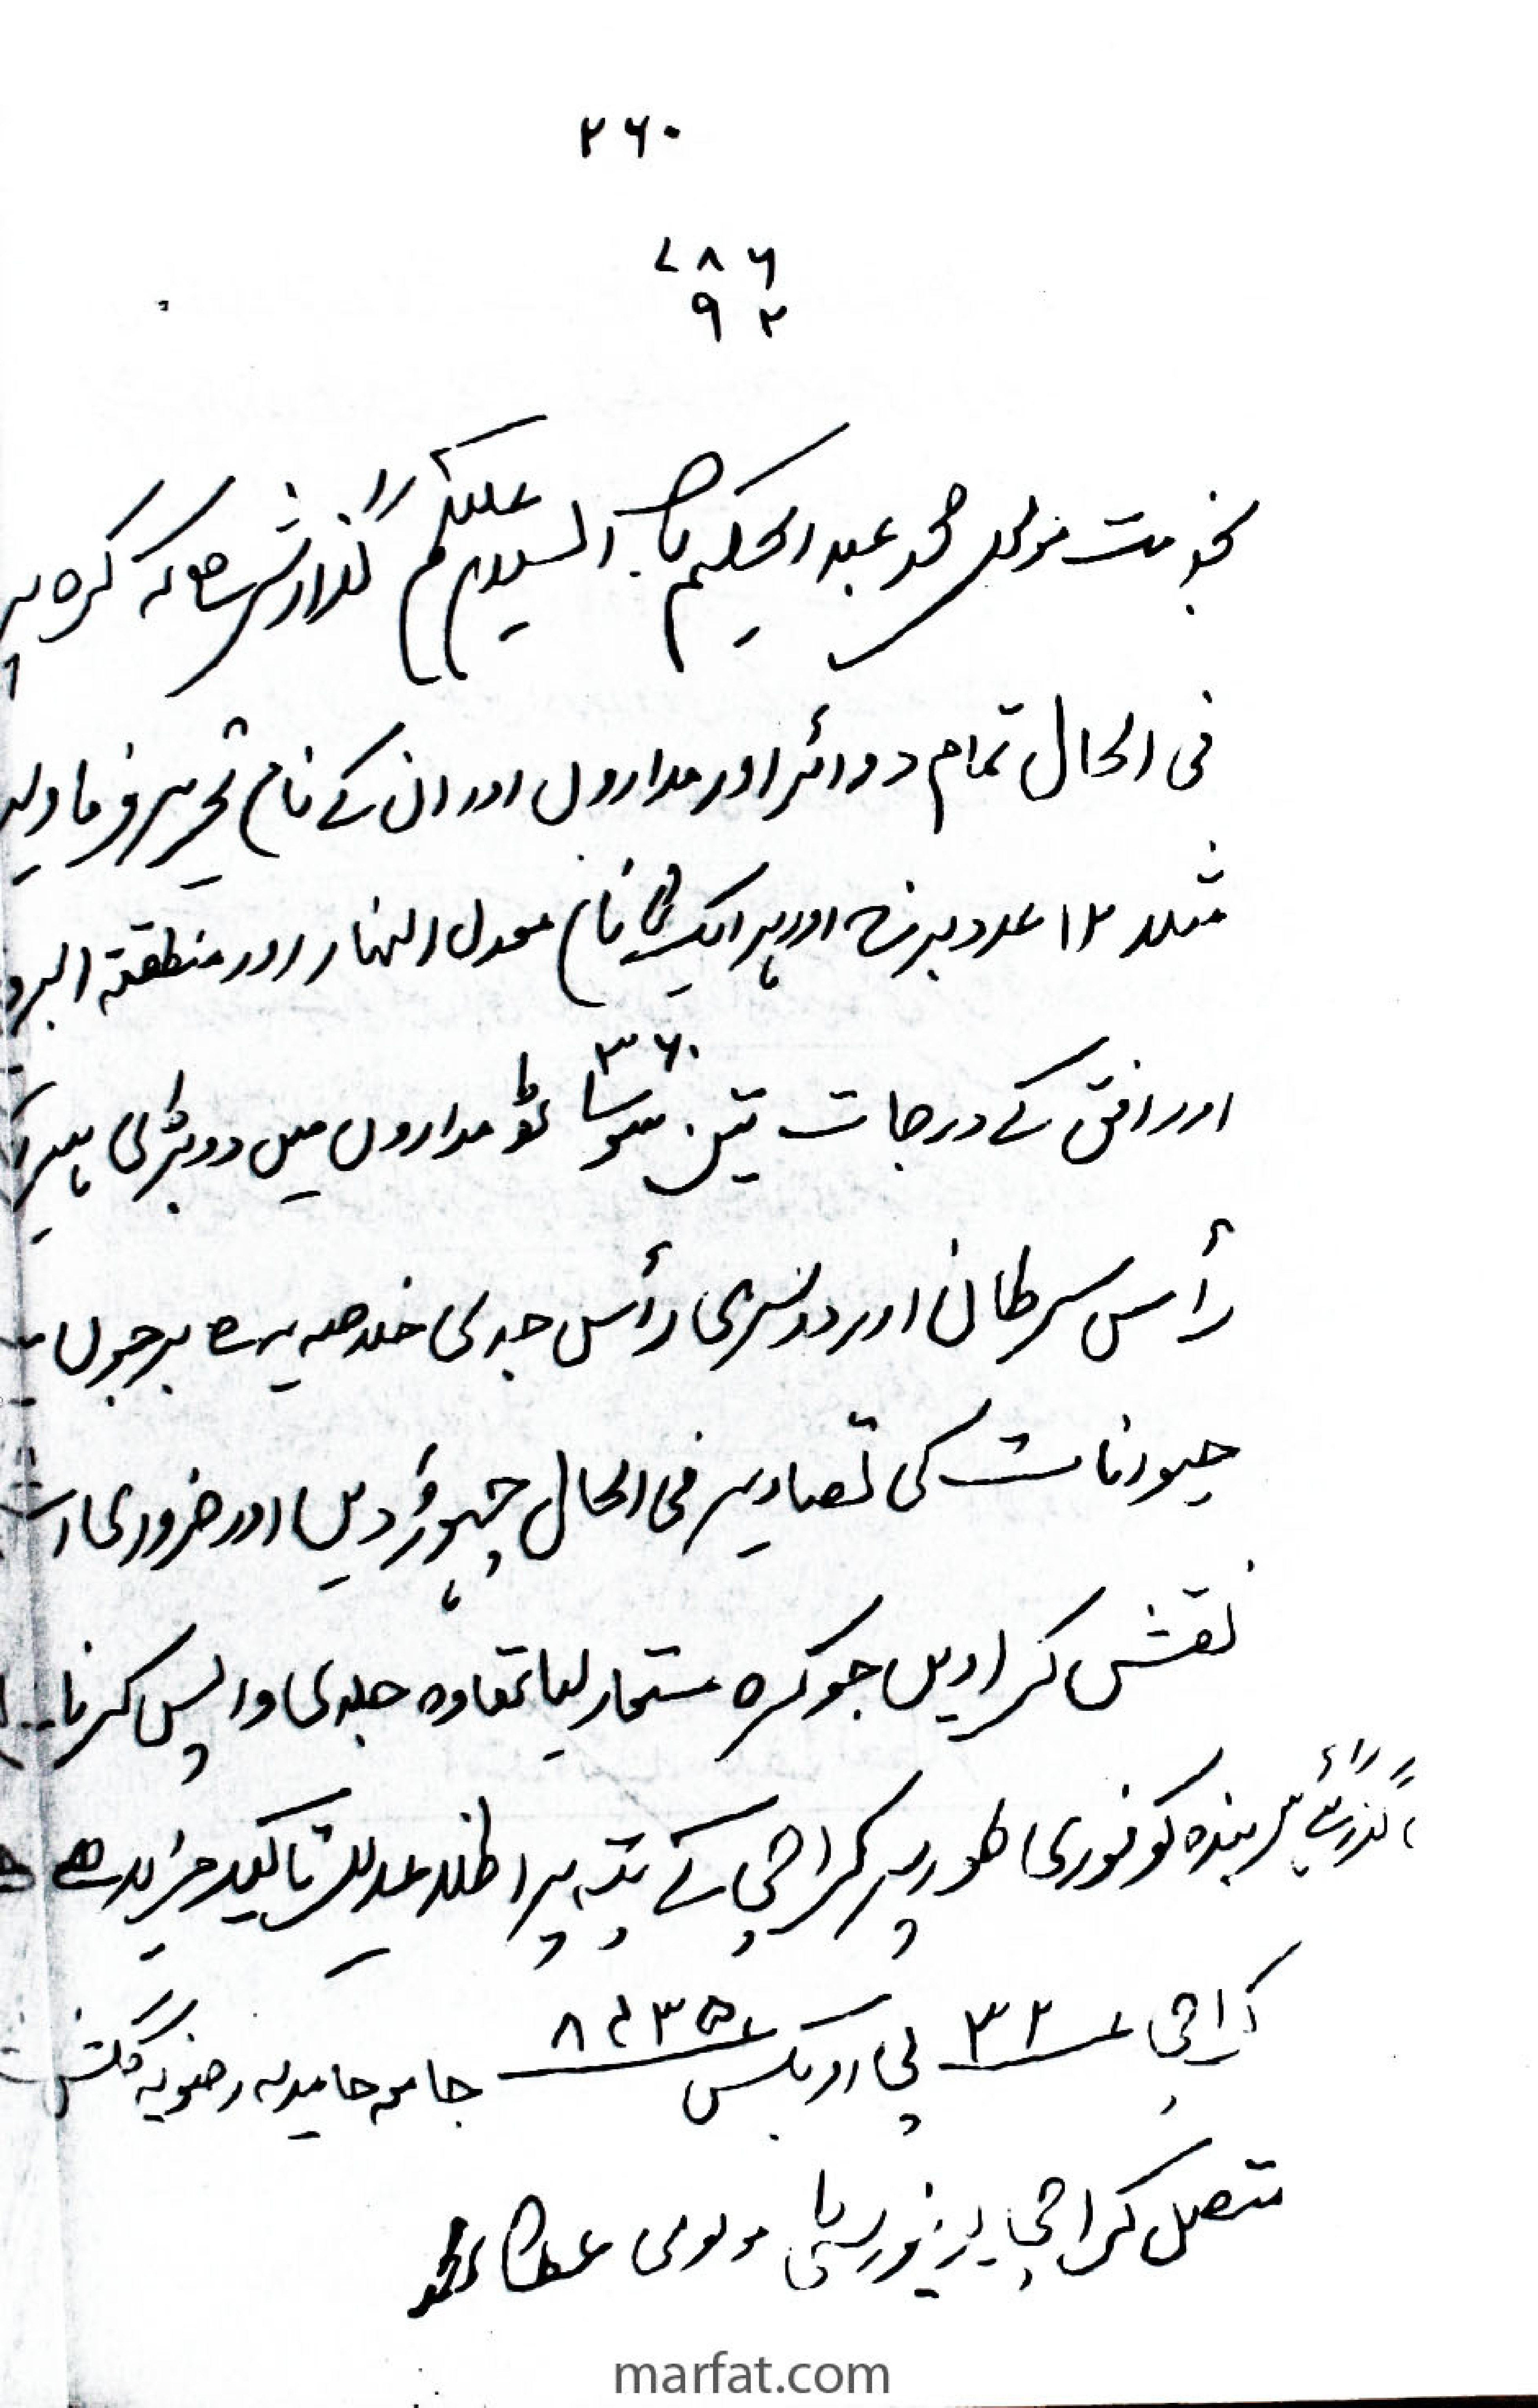 ۲۶۰
۷۸۶
۹۲
بخدمت مولوی محمد عبد الحکیم صاحب السلام علیکم گذارش ہے کہ کرہ پر
فی الحال تمام دوائر اور مداروں اور ان کے نام تحریر فرما دیں
مثلا ۱۲ عدد برج اور ہر ایک کا نام معدل النہار اور منطقتہ البرو
اور افق کے درجات تین سو ساٹھ ۳۶۰ مداروں میں دو بڑی ہیں
رأس سرطان اور دوسری رأس جدی خلاصہ یہ ہے برجوں
حیوانات کی تصاویر فی الحال چھوڑ دیں اور ضروری
نقش کرا دیں جو کرہ مستعار لیا تھا وہ جلدی واپس کرنا
بندہ کو فوری طور پر کراچی کے پتہ پر اطلاع دیں تاکید مزید ہے
کراچی ۳۲ پی او بکس جامعہ حامدیہ رضویہ گلشن
متصل کراچی یونیورسٹی مولوی عطا محمد
marfat.com